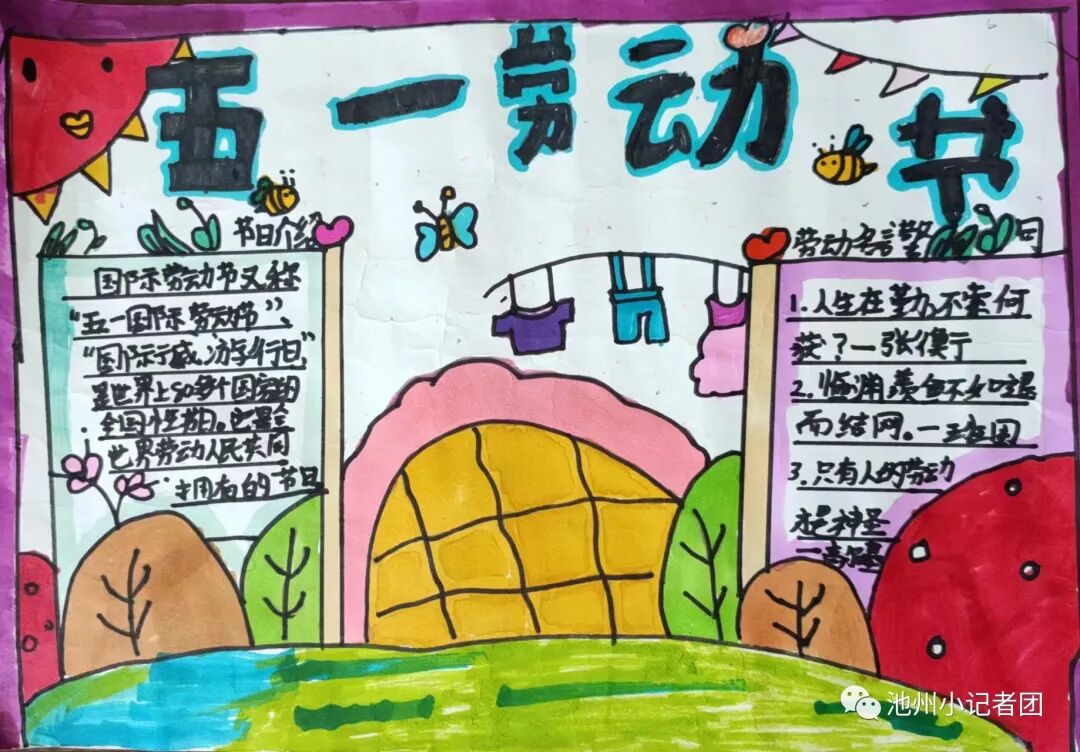 五一劳动节
节日介绍
国际劳动节又称
“五一国际劳动节”、
“国际示威游行日”
是世界上80多个国家的
全国性节日。它是全
世界劳动人民共同
拥有的节日
劳动名言警句
1.人生在勤,不索何
获?一张衡
2.临渊羡鱼不如退
而结网。一班固
3.只有人的劳动
才是神圣
一高尔基
池州小记者团